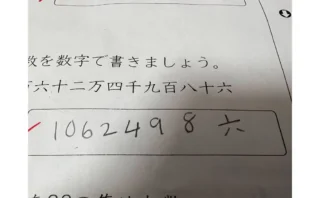 数を数字で書きましょう。
六十二万四千九百八十六
1062498六